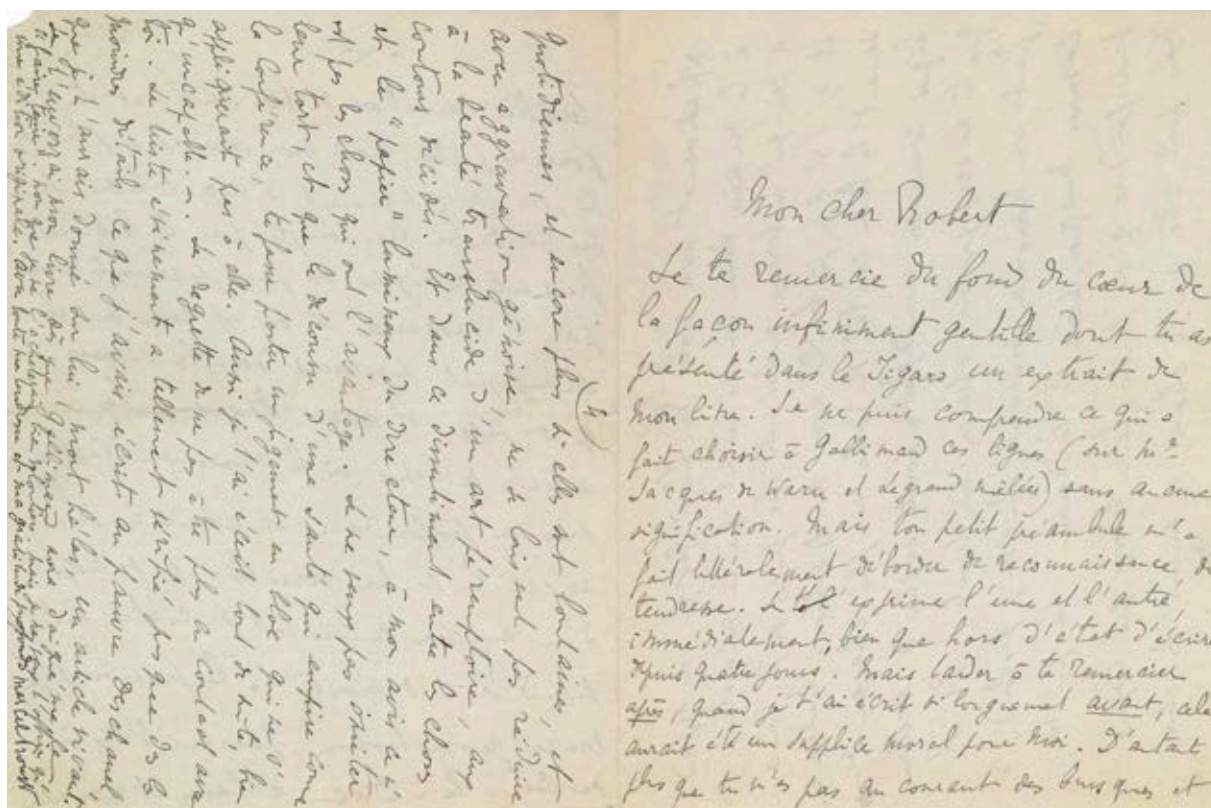 Mon cher Robert
Je te remercie du fond du cœur de
la façon infiniment gentille dont tu as
présenté dans le Figaro un extrait de
mon livre. Je ne puis comprendre ce qui a
fait choisir à Gallimard ces lignes (sur
Jacques de et Legrand mêlées) sans aucune
signification. Mais ton petit préambule m'a
fait littéralement déborder de reconnaissance, de
tendresse. Je t'exprime l'une et l'autre,
immédiatement, bien que hors d'état d'écrire
depuis quatre jours. Mais tarder à te remercier
après, quand je t'ai écrit si longuement avant, cela
aurait été un supplice moral pour moi. D'autant
plus que tu n'es pas au courant des brusques et
4)
quotidiennes, et encore plus si elles sont lointaines, et
avec aggravation génoise, ne se laissent pas réduire
à la beauté translucide d'un art péremptoire, aux
contours décidés. Et dans ce dissentiment entre les choses
et le "papier" lumineux du directeur, à mon avis ce n'
est pas les choses qui ont l'avantage. Je ne veux pas insister
leur tort, et que le décousu d'une santé qui empire comme
la Conférence, te fasse porter un jugement en bloc qui ne s'
appliquerait pas à elle. Aussi je l'ai écrit tout de suite, bien
qu'incapable. Je regrette de ne pas être plus au contact avec
toi. Le triste événement a tellement vérifié presque dès les
moindres détails ce que j'avais écrit au pauvre Deschanel
que je t'aurais donné sur lui mort hélas, un article vivant.
Je t'enverrai mon livre dès que Gallimard aura daigné me le
faire tenir. non que
une édition originale. Marcel Proust